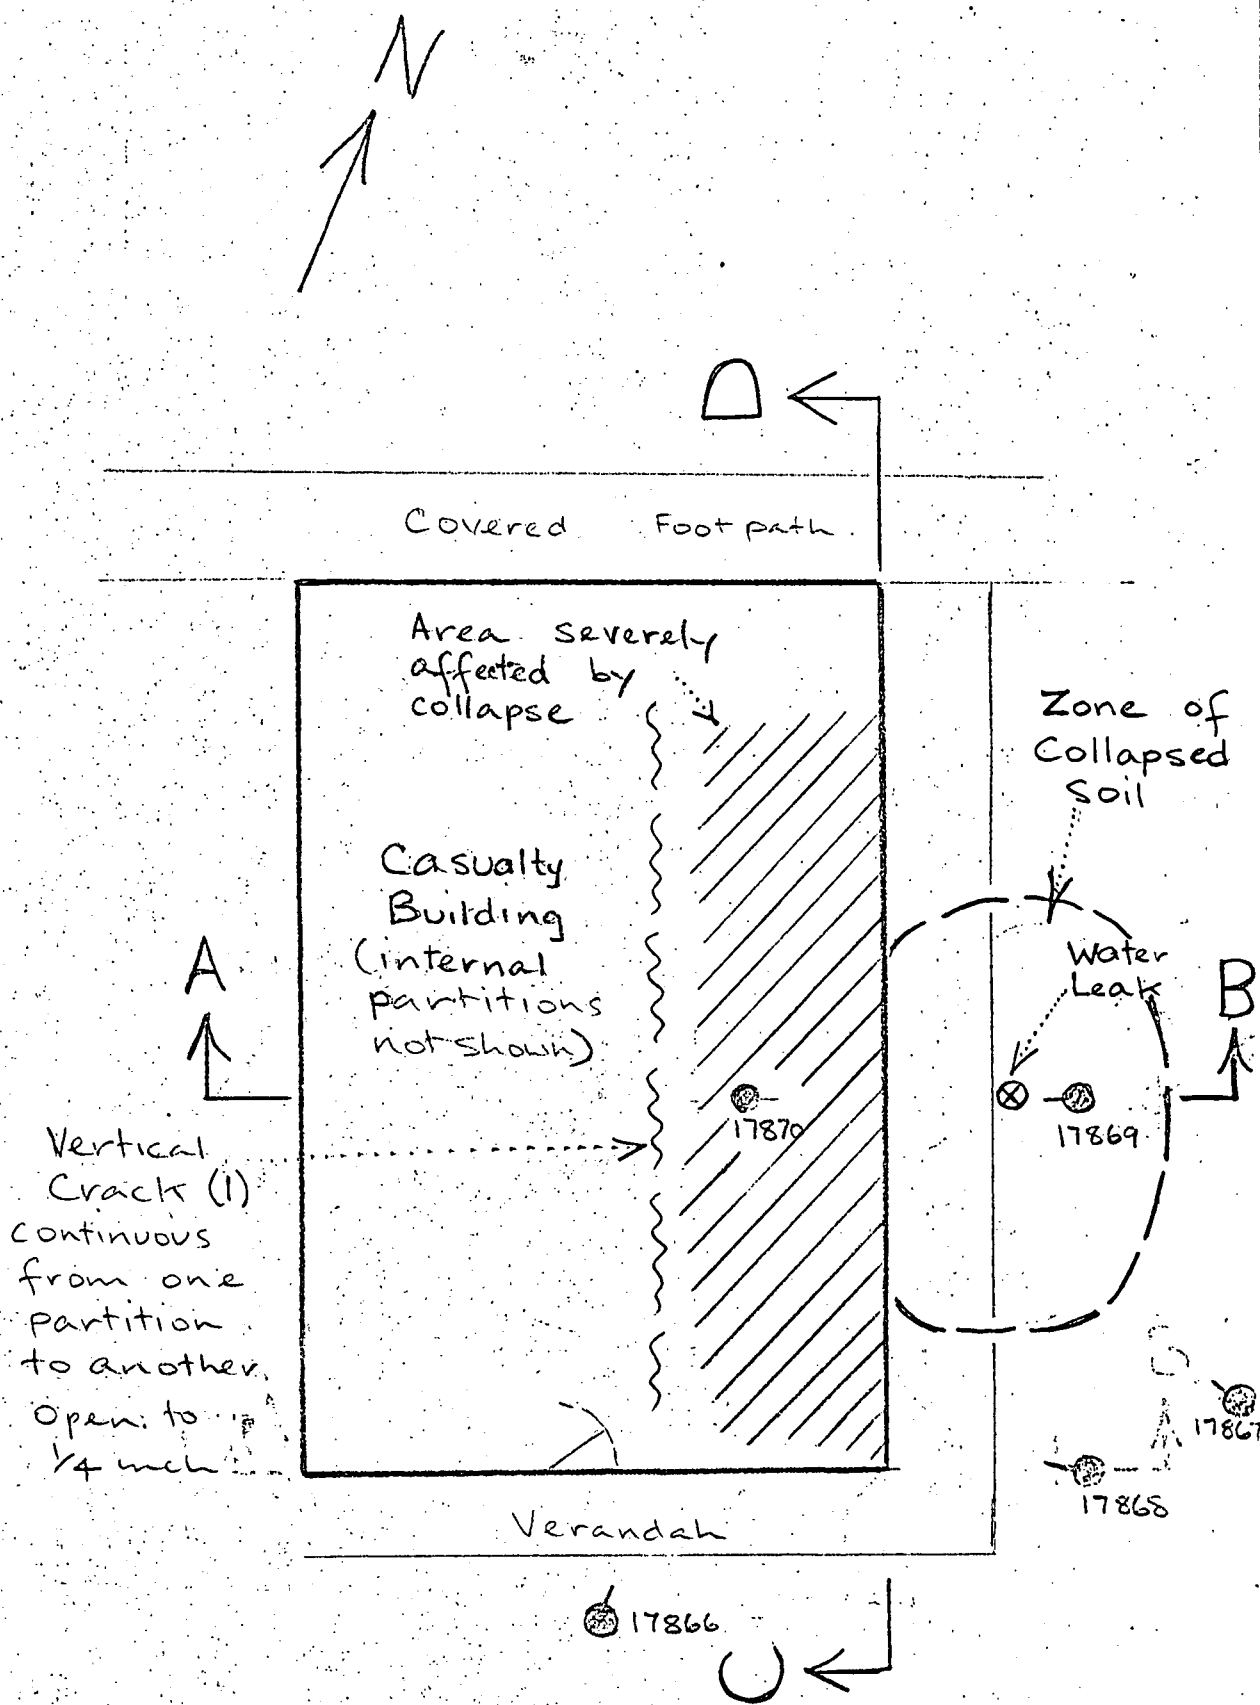 N
D
Covered Footpath
Area severely
affected by
collapse
Zone of
Collapsed
Soil
Casualty
Building
(internal
partitions
not shown)
Water
Leak
A
B
17870
17869
Vertical
Crack (1)
continuous
from one
partition
to another.
Open to
1/4 inch
17867
17868
Verandah
17866
C